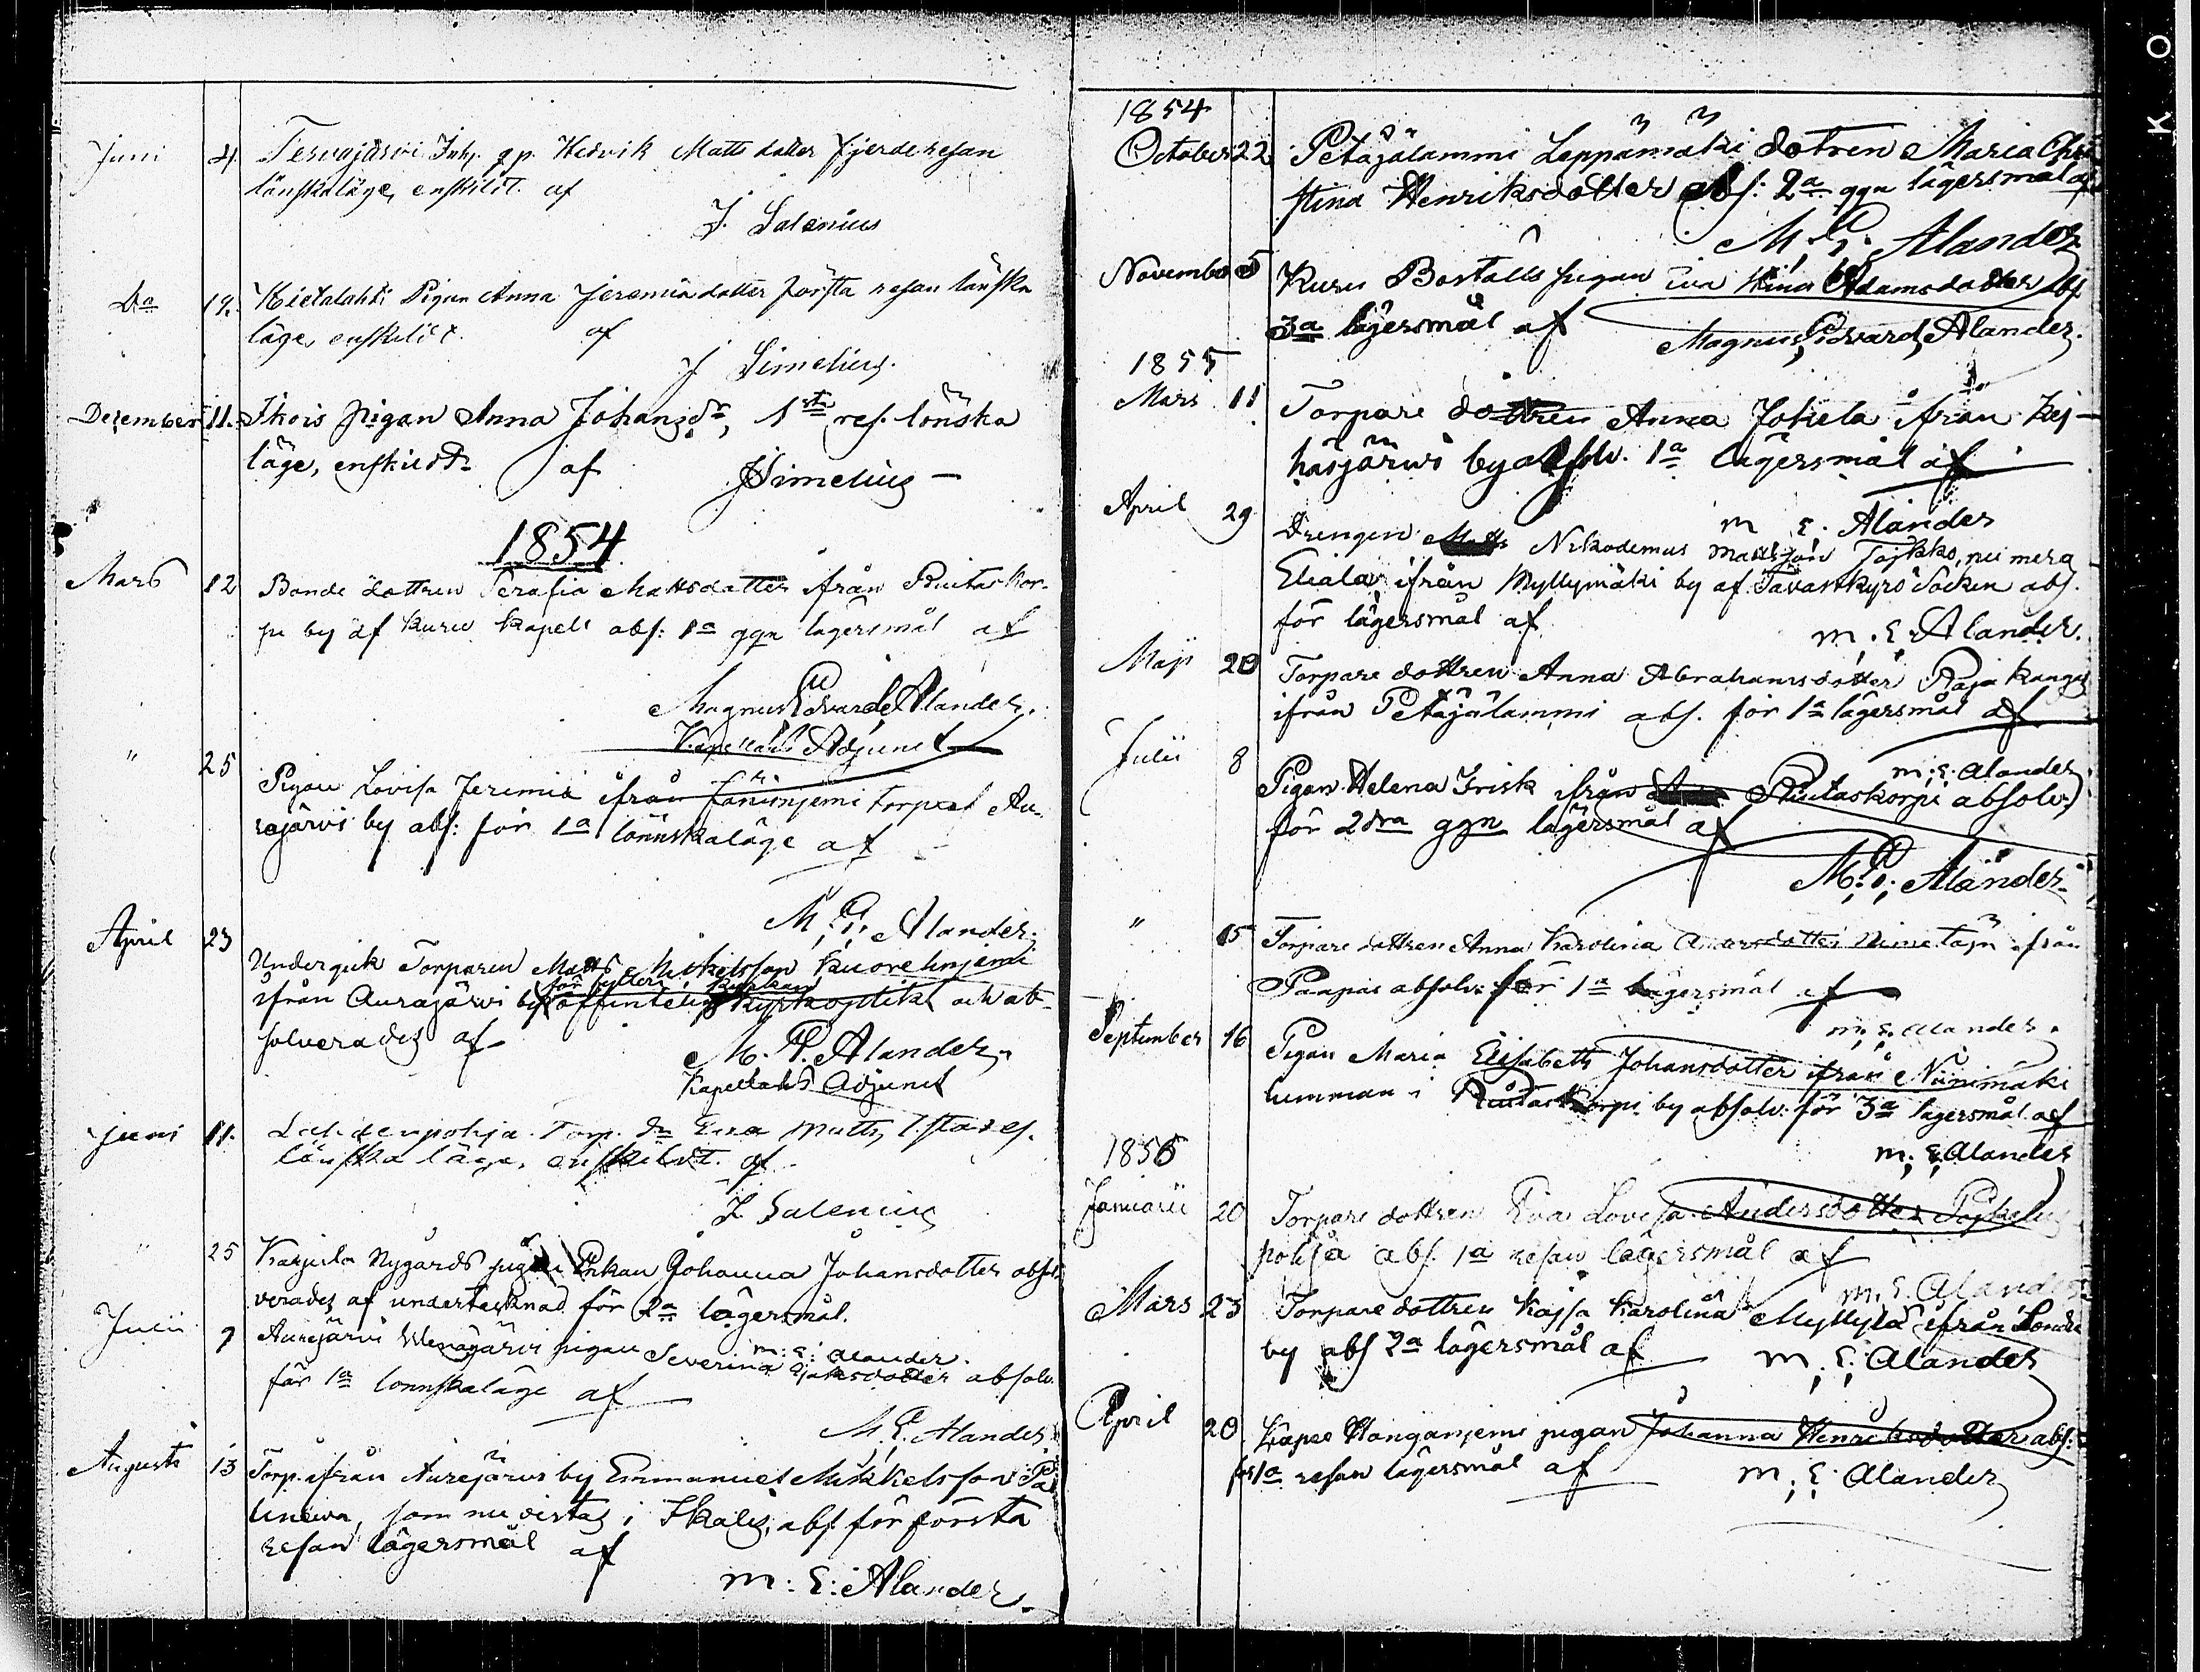 Juni 4. Tervajärvi Inh. qp. Hedvik Matts dotter fjerde resan
lönskaläge, enskildt. af
J. Salenius
Do 19. Kietalahti Pigan Anna Jeremiadotter första resan lönska
läge, enskildt. af
J Simelius.
December 11. Pigan Anna Johansdr, 1sta res. lönska
läge, enskildt. af JSimelius
1854
Mars 12 Bonde dottren Serafia Mattsdotter ifrån Ruutas Kor-
pi by af Kuru Kapell abs: 1a ggn lägersmål af
Magnus Edvard Alander.
Kapellans Adjunct
" 25 Pigan Lovisa Jeremiæ ifrån torpet Au-
rajärvi by abs: för 1a lönnskaläge af
M. E. Alander.
April 23 Undergick Torparen Matts Mikelsson Kuorelinjemi
ifrån Aurajärvi by för fylleri i kyrkan offentelig Kyrkoplikt och ab-
solverades af
M. E. Alander
Kapellans Adjunct
Juni 11. Lahdenpohja Torp. dr Eva Matts, 1sta res.
lönska läge, enskildt. af
J. Salenius
" 25 Karjula Nygårds pigan Enkan Johanna Johansdotter absol-
verades af undertecknad för 2a lägersmål.
m. E. Alander.
Julii 9 Aurejärvi pigan Severina Isaksdotter absolv.
för 1a lönnskaläge af
M. E. Alander.
Augusti 13 Torp. ifrån Aurejärvi by Emmanuel Mikkelsson Pa
lineva, som nu vistas i Ikalis, abs. för första
resan lägersmål af
M: E: Alander.
1854
October 22 Petäjälammi Leppämäki dotren Maria Chri
stina Henriksdotter abs: 2a ggn lägersmål af
M. E. Alander
November 5 Kuru Boställs pigan Eva Stina Adamsdotter abs
3a lägersmål af Magnus Edvard Alander.
1855
Mars 11 Torpare dottren Anna Jokela ifrån Kej-
häsjärwi by absolv. 1a lägersmål af
m E. Alander
April 29 Drengen Nikodemus Mattsson Tojkko, nu mera
Eliala, ifrån Myllymäki by af Tavastkyrö Socken abs.
för lägersmål af m. E. Alander.
Maji 20 Torpare dottren Anna Abrahamsdotter Raja kangas
ifrån Petäjälammi abs. för 1a lägersmål af
m. E. Alander
Julii 8 Pigan Helena Frisk ifrån Ruutaskorpi absolv.
för 2dra ggn lägersmål af
M. E. Alander
" 15 Torpare dottren Anna Karolina Andersdotter ifrån
Paapas absolv. för 1a lägersmål af
m. E. Alander.
September 16 Pigan Maria Elisabeth Johansdotter ifrån Niinimäki
humman i Ruutaskorpi by absolv. för 3a lägersmål af
m. E. Alander
1856
Januarii 20 Torpare dottren Eva Lovisa Andersdotter
pohja abs. 1a resan lägersmål af
m. E. Alander
Mars 23 Torpare dottren Kajsa Karolina Myllylä ifrån
by abs 2a lägersmål af m. E. Alander
April 20 Kapee Hanganjemi pigan Johanna Henriksdotter abs.
för 1a resan lägersmål af m. E. Alander
K O